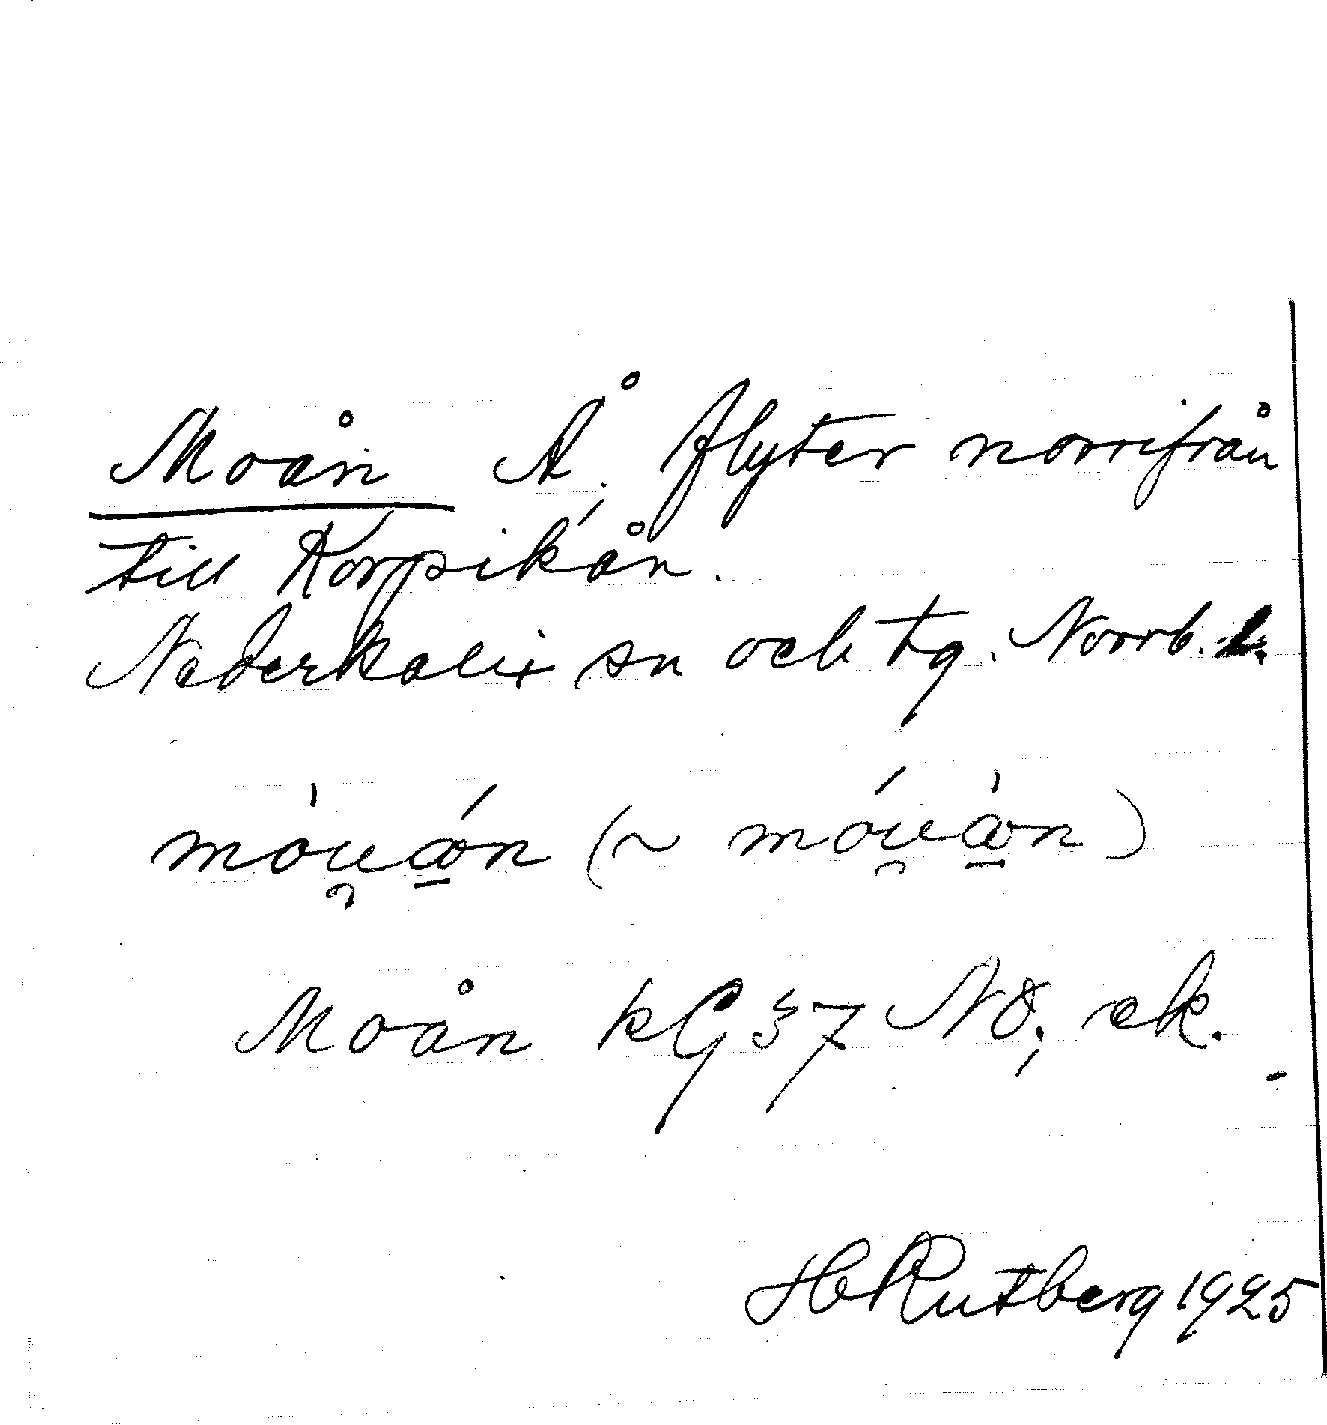 Moån Å, flyter norrifrån
till Korpikån.
Nederkalix sn och tg. Norrb. l.
Moån kG 37 NO; ek.
H Rutberg 1925